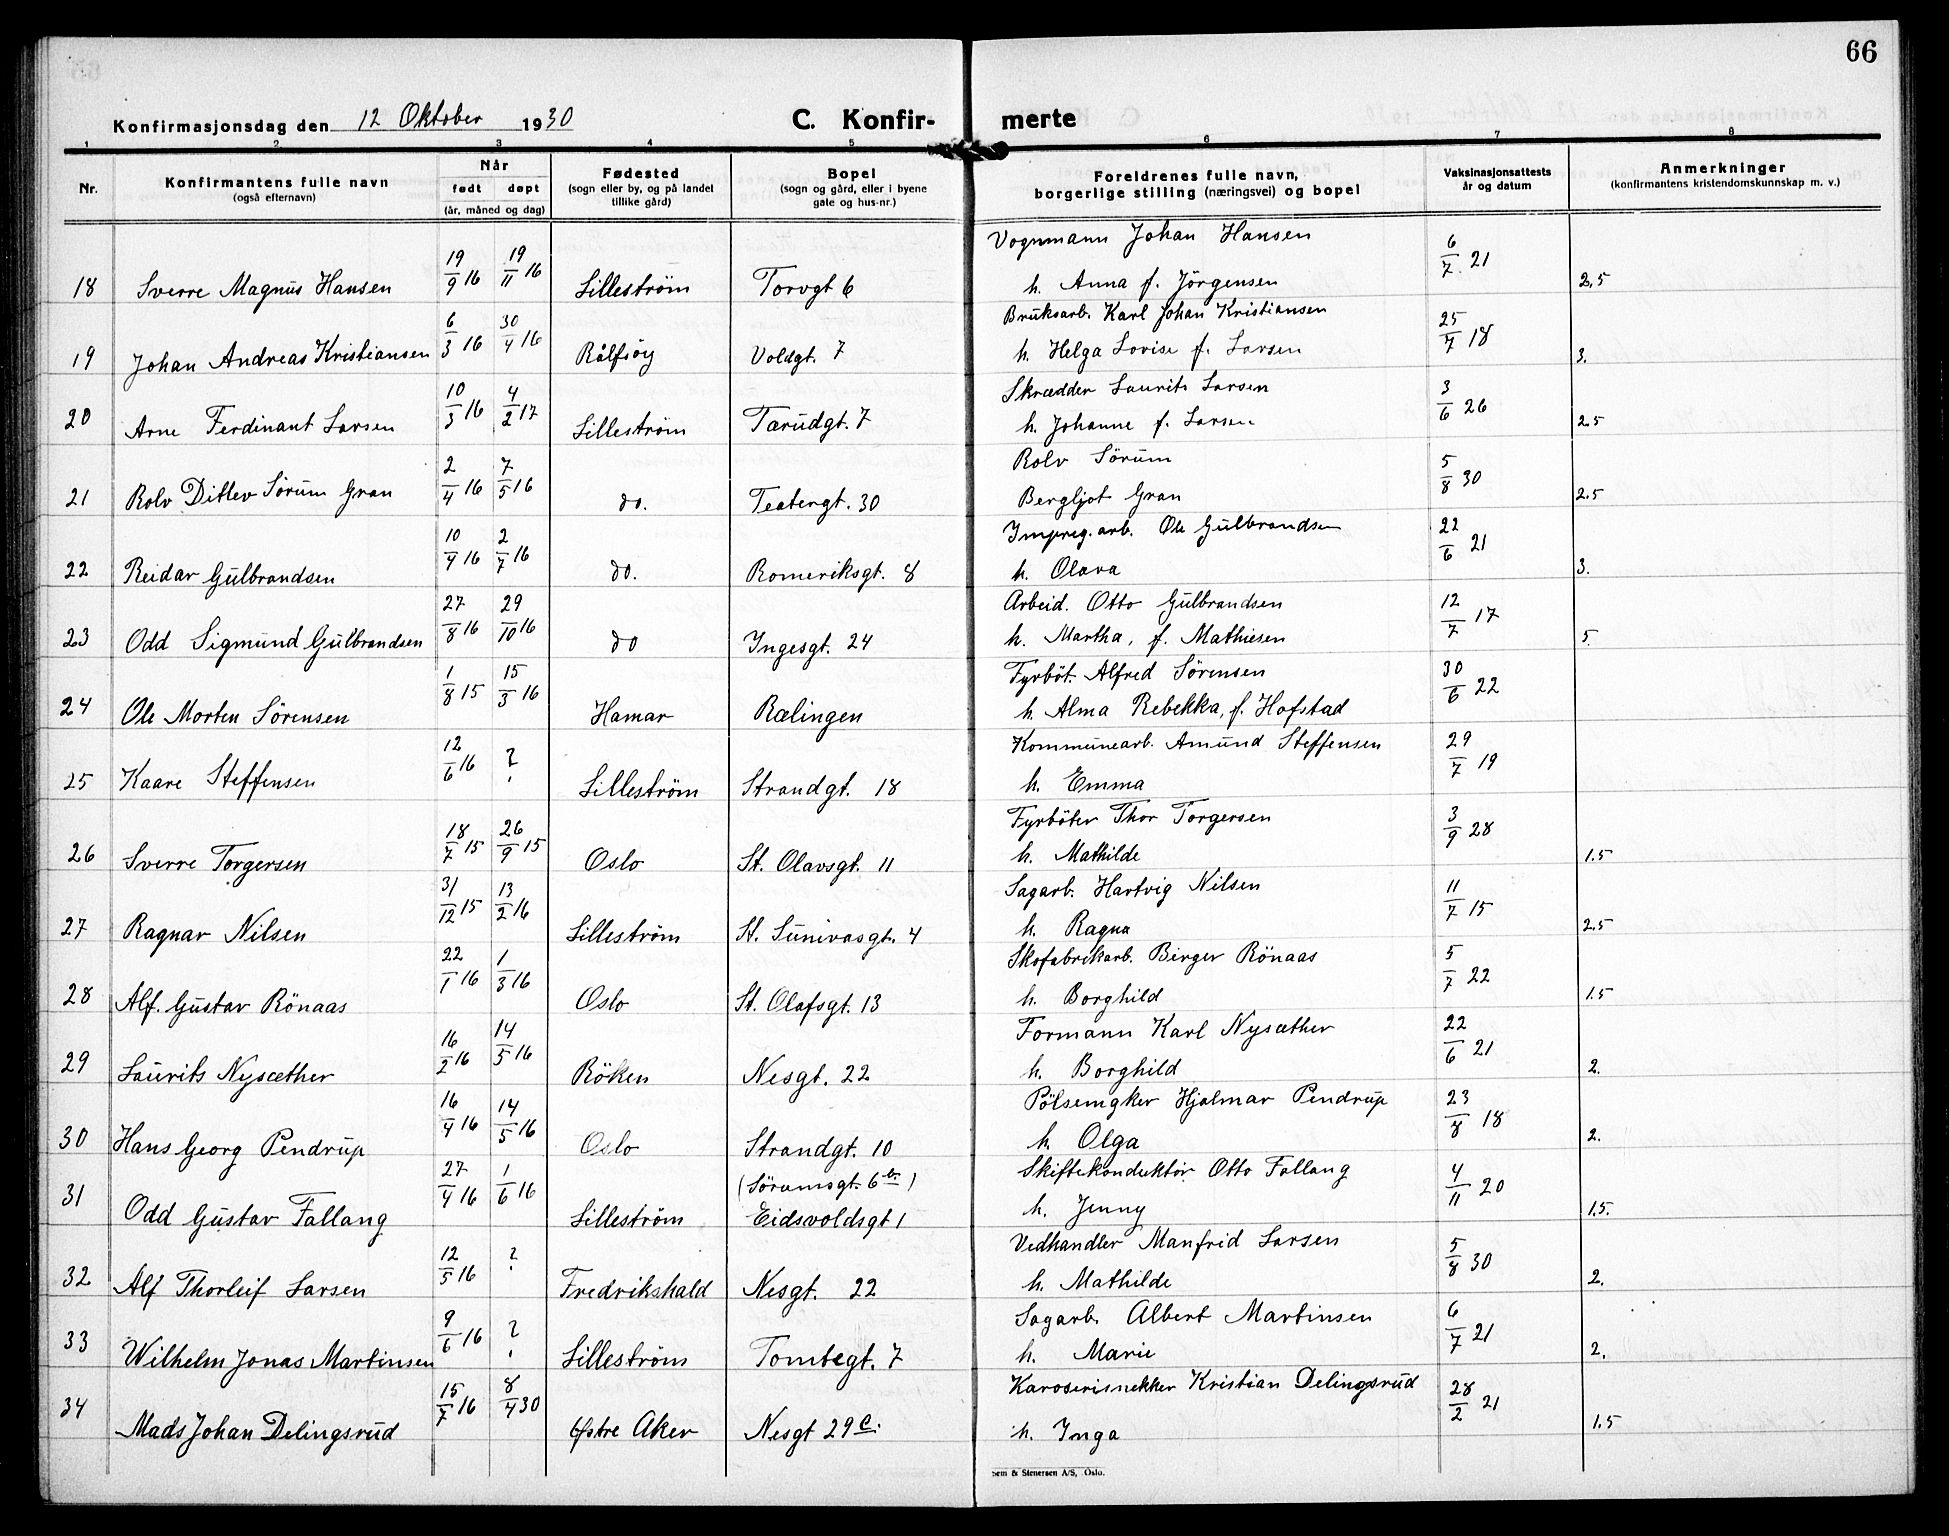 66
Konfirmasjonsdag den 12 Oktober 1930 C. Konfir- merte
1 2 3 4 5 6 7 8
Nr. Konfirmantens fulle navn (også efternavn) Når født døpt (år, måned og dag) Fødested (sogn eller by, og på landet tillike gård) Bopel (sogn og gård, eller i byene gate og hus-nr.) Foreldrenes fulle navn, borgerlige stilling (næringsvei) og bopel Vaksinasjonsattests år og datum Anmerkninger (konfirmantens kristendomskunnskap m. v.)
18 Sverre Magnus Hansen 19/9 16 19/11 16 Lilleström Torvgt 6 Vognmann Johan Hansen 6/7 21
h. Anna f. Jörgensen 2,5
19 Johan Andreas Kristiansen 6/3 16 30/4 16 Rålfsöy Voldgt. 7 Bruksarb. Karl Johan Kristiansen 25/7 18
h. Helga Lovise f. Larsen 3.
20 Arne Ferdinant Larsen 10/3 16 4/2 17 Lilleström Tærudgt. 7 Skrædder Laurits Larsen 3/6 26
h. Johanne f. Larsen 2.5
21 Rolv Ditlev Sörum Gran 2/4 16 7/5 16 do. Teatergt. 30 Rolv Sörum 5/8 30
Bergljot Gran 2.5
22 Reidar Gulbrandsen 10/4 16 2/7 16 do. Romeriksgt. 8 Impreg. arb. Ole Gulbrandsen 22/6 21
h. Olava 3.
23 Odd Sigmund Gulbrandsen 27/8 16 29/10 16 do Ingesgt. 24 Arbeid. Otto Gulbrandsen 12/7 17
h. Martha, f. Mathiesen 5.
24 Ole Morten Sörensen 1/8 15 15/3 16 Hamar Rælingen Fyrböt. Alfred Sörensen 30/6 22
h. Alma Rebekka, f. Hofstad
25 Kaare Steffensen 12/6 16 ? Lilleström Strandgt. 18 Kommunearb. Amund Steffensen 29/7 19
h. Emma
26 Sverre Torgersen 18/7 15 26/9 15 Oslo St. Olavsgt. 11 Fyrböter Thor Torgersen 3/9 28
h. Mathilde 1.5
27 Ragnar Nilsen 31/12 15 13/2 16 Lilleström St. Sunivasgt. 4 Sagarb. Hartvig Nilsen 11/7 15
h. Ragna 2.5
28 Alf. Gustav Rönaas 22/1 16 1/3 16 Oslo St. Olafsgt. 13 Skofabrikarb. Birger Rönaas 5/7 22
h. Borghild 1.5
29 Laurits Nysæther 16/2 16 14/5 16 Röken Nesgt. 22 Formann Karl Nysæther 22/6 21
h. Borghild 2.
30 Hans Georg Pendrup 16/4 16 14/5 16 Oslo Strandgt. 10 Pölsemgker Hjalmar Pendrup 23/8 18
h. Olga 2.
31 Odd Gustav Fallang 27/4 16 1/6 16 Lilleström (Sörumsgt. 6 b.) Eidsvoldsgt 1 Skiftekonduktör Otto Fallang 4/11 20
h. Jenny 1.5.
32 Alf Thorleif Larsen 12/5 16 ? Fredrikshald Nesgt. 22 Vedhandler Manfrid Larsen 5/8 30
h. Mathilde 2.
33 Wilhelm Jonas Martinsen 9/6 16 ? Lilleström Tomtegt. 7 Sagarb. Albert Martinsen 6/7 21
h. Marie 2.
34 Mads Johan Delingsrud 15/7 16 8/4 30 Østre Aker Nesgt 29 c. Karoserisnekker Kristian Delingsrud 28/2 21
h. Inga 1.5
Sem & Stenersen A/S, Oslo.